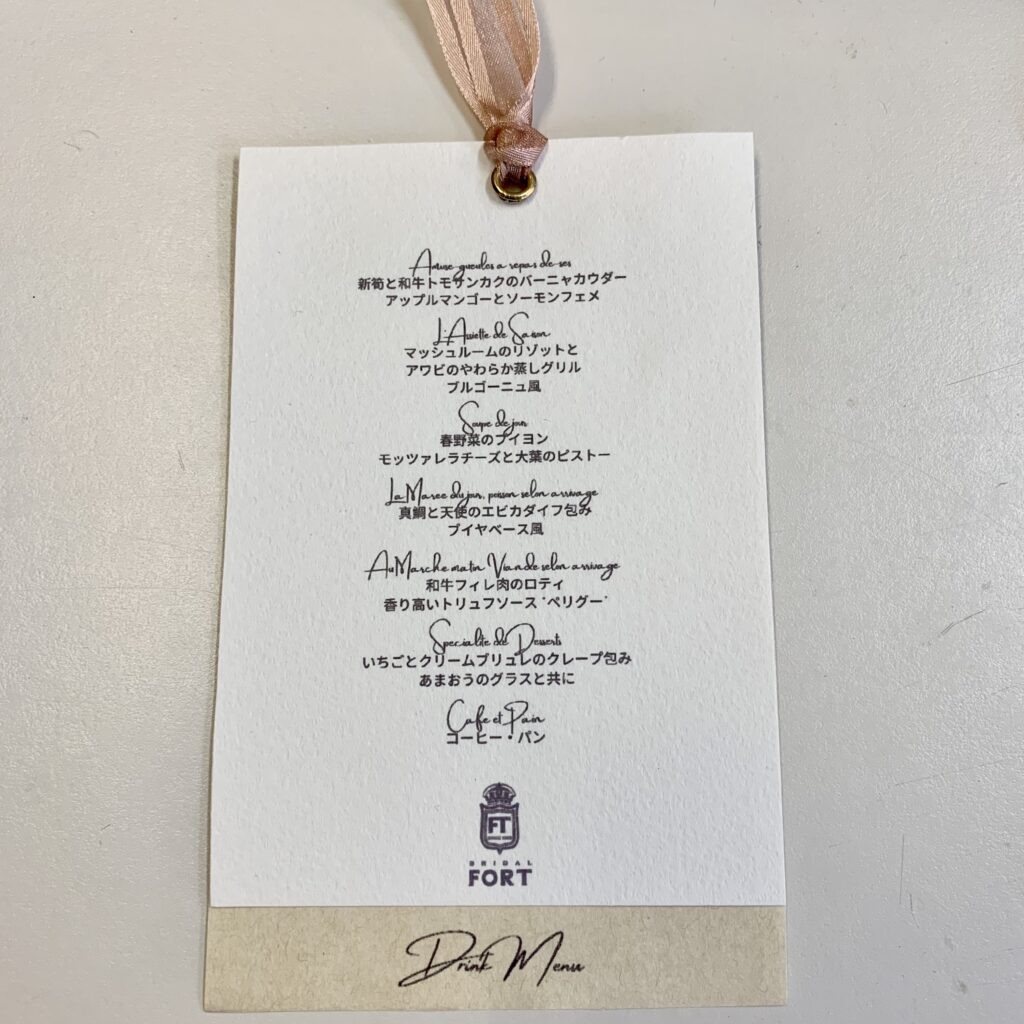 Amuse-gueules a repas de ses
新筍と和牛トモサンカクのバーニャカウダー
アップルマンゴーとソーモンフュメ
L'Assiette de Saison
マッシュルームのリゾットと
アワビのやわらか蒸しグリル
ブルゴーニュ風
Soupe de jour
春野菜のブイヨン
モッツァレラチーズと大葉のピストー
La Maree du jour, poisson selon arrivage
真鯛と天使のエビカダイフ包み
ブイヤベース風
Au Marche matin Viande selon arrivage
和牛フィレ肉のロティ
香り高いトリュフソース "ペリグー"
Specialite de Desserts
いちごとクリームブリュレのクレープ包み
あまおうのグラスと共に
Cafe et Pain
コーヒー・パン
FT
BRIDAL
FORT
Drink Menu